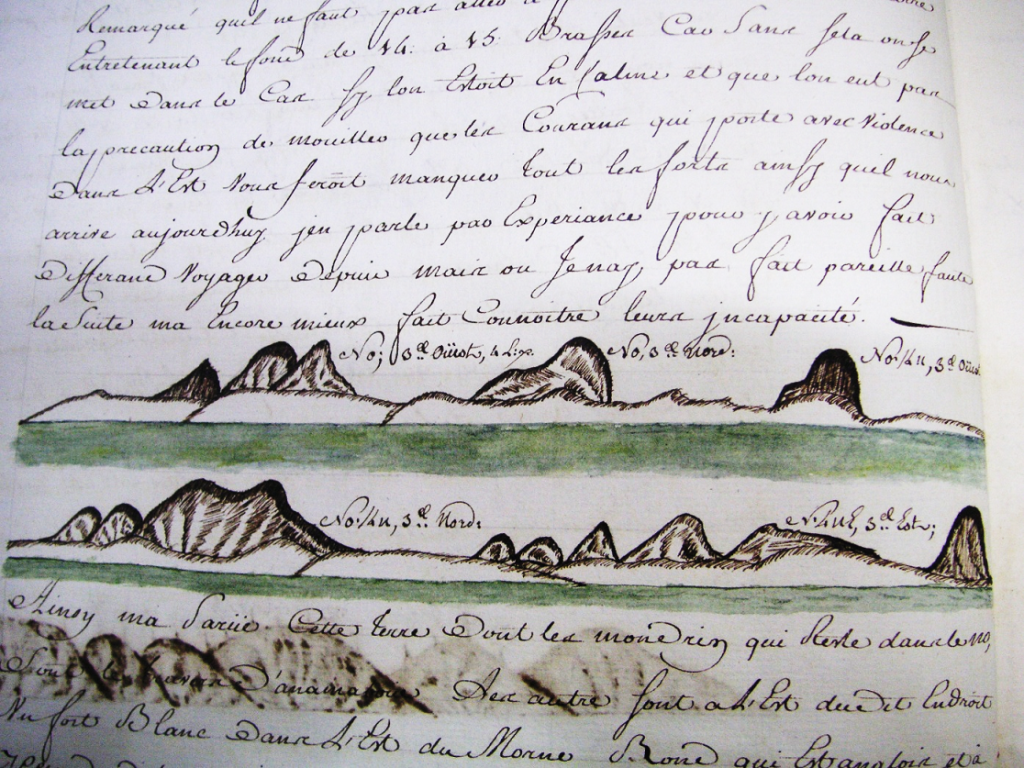 Remarqué quil ne faut pas aller
Entretenant le fond de 14: à 15: Brasses Car Sans sela on se
met dans le Cas sy lon Etoit En Calme et que lon eut pas
la precaution de mouiller que les Courans qui porte avec Violence
dans L'Est Nous feroit manquer tout les forts ainsy quil nous
arrive aujourdhuy jen parle par Experiance pour y avoir fait
differand Voyages depuis mais ou Jenay pas fait pareille faute
la Suite ma Encore mieux fait Connoitre leurs jncapacité.
No; 3.d Oüest, 4 L. No, 3.d Nord: No.¼n, 3.d Oüest
No.¼n, 3.d Nord: N.¼nE, 3.d Est;
Ainsy ma Parüe Cette terre dont les mondrin qui Reste dans le no,
Sont le travers D'anamabou Les autre sont a L'Est du dt Endroit
Un fort Blanc dans L'Est du Morne Rond qui Est anglois et à